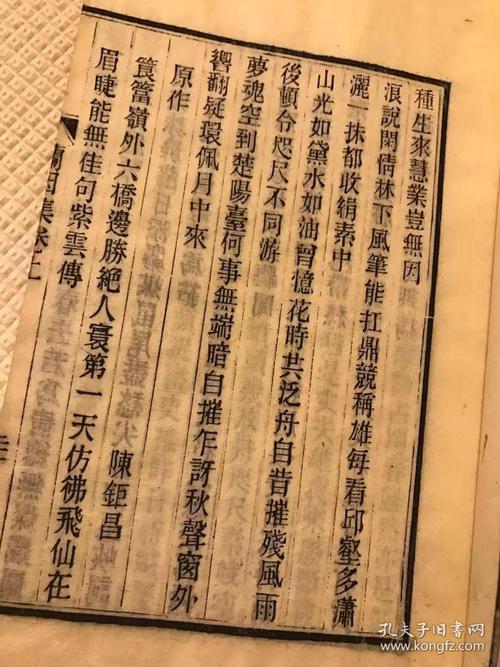 種生來慧業豈無因
浪說閑情林下風筆能扛鼎競稱雄每看邱壑多瀟
灑一抹都收絹素中
山光如黛水如油曾憶花時共泛舟自昔摧殘風雨
後頓令咫尺不同游
夢魂空到楚陽臺何事無端暗自摧乍訝秋聲窗外
響翻疑環佩月中來
原作
陳鉅昌
篔簹嶺外六橋邊勝絕人寰第一天仿彿飛仙在
眉睫能無佳句紫雲傳
蘭因集卷上
孔夫子旧书网
www.kongfz.com